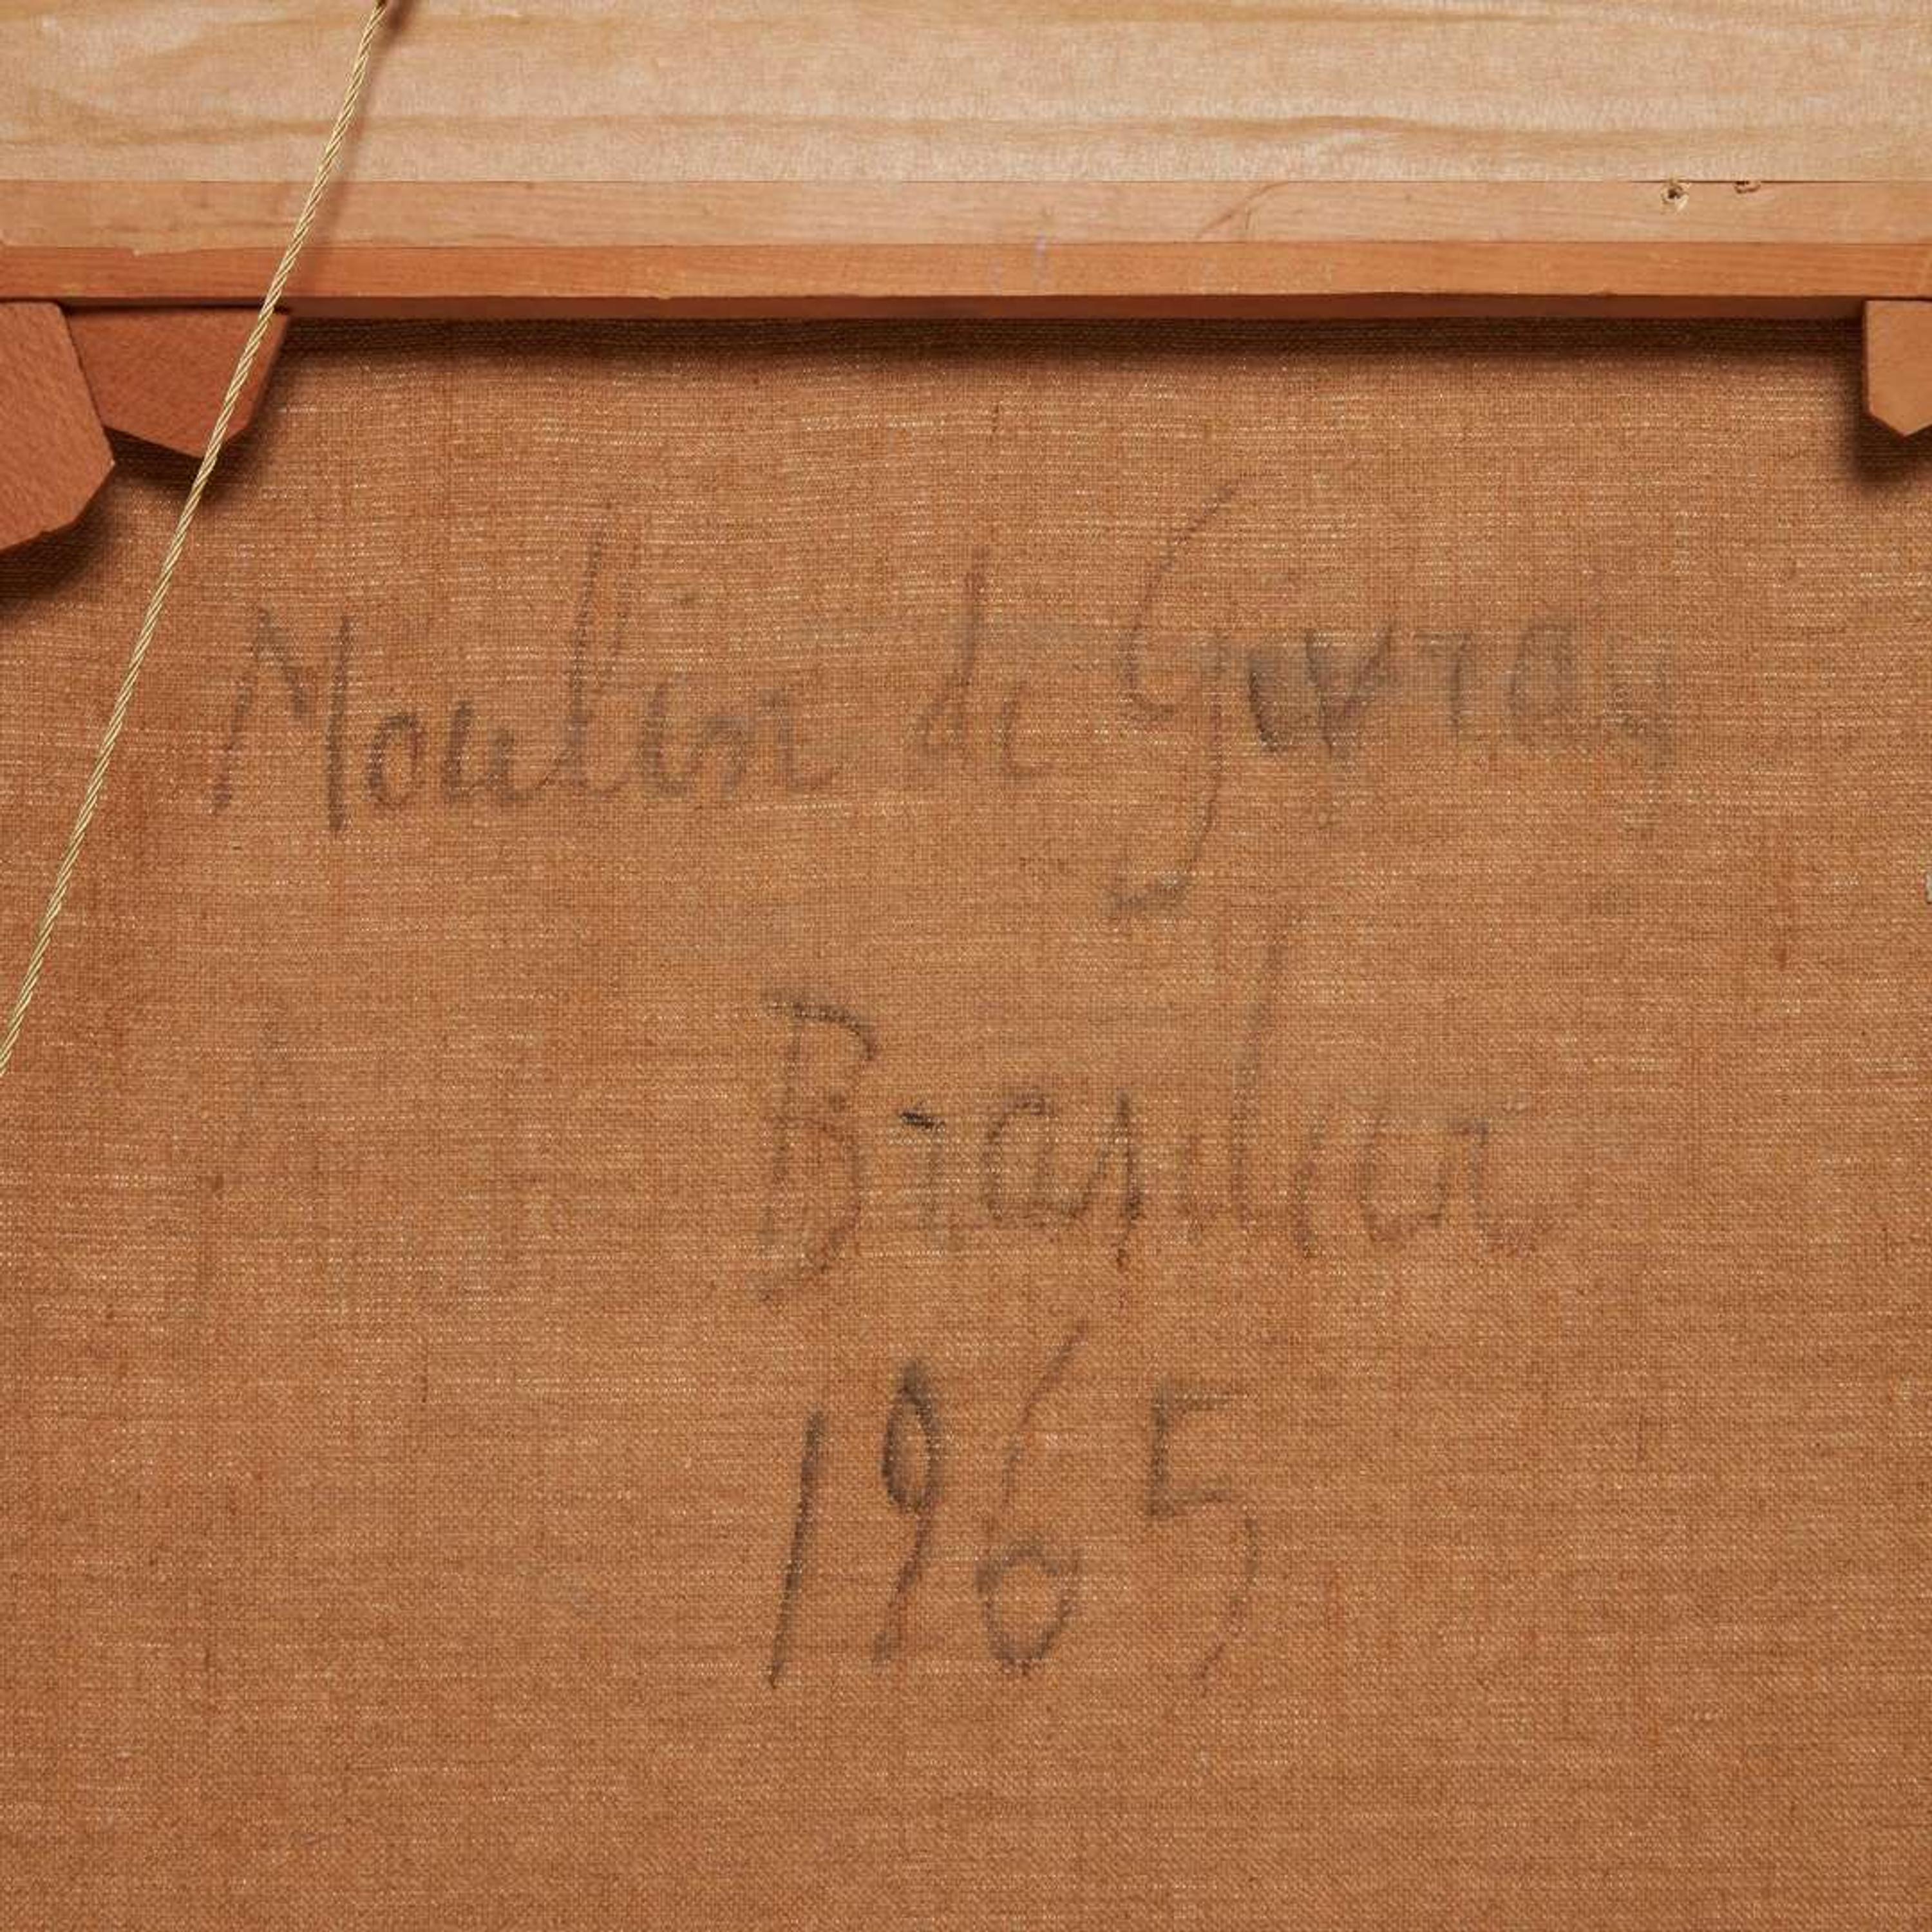 Moulin de
Brasilier
1965